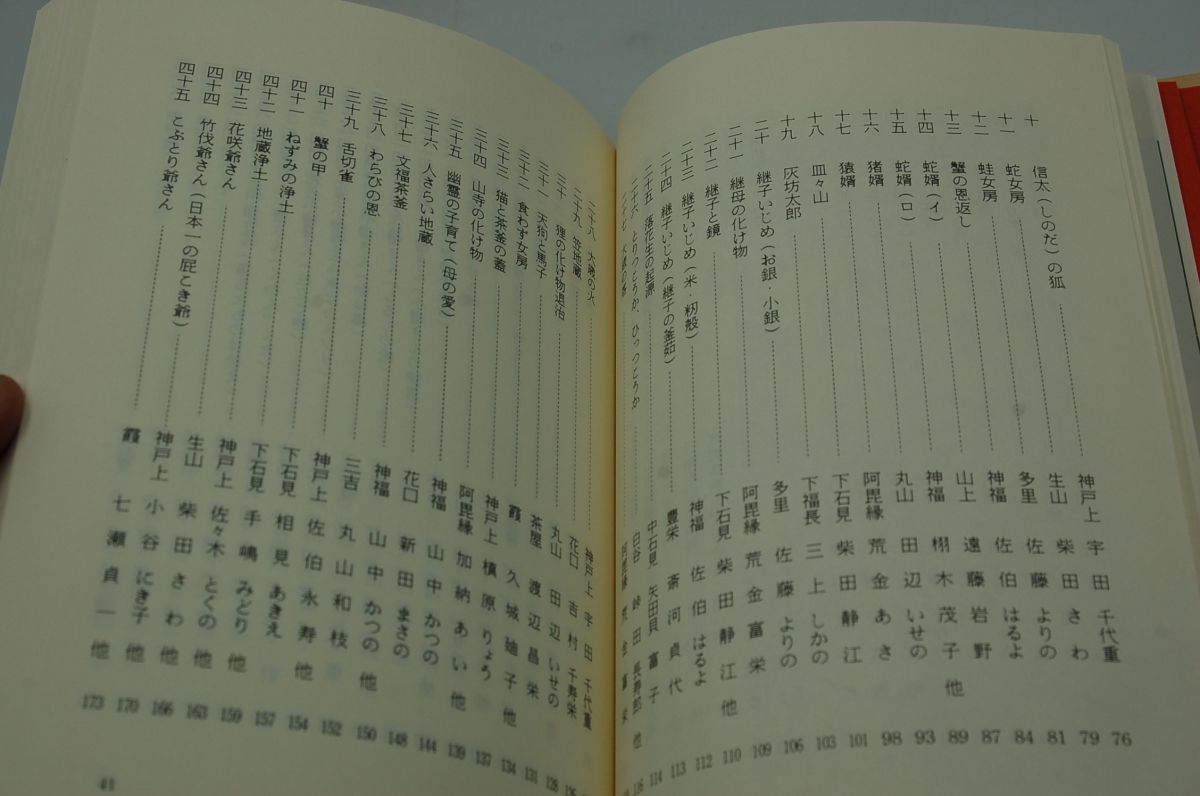 十 信太(しのだ)の狐 神戸上 宇田千代重 76
十一 蛇女房 生山 柴田さわ 79
十二 蛙女房 多里 佐藤よりの 81
十三 蟹の恩返し 神福 佐伯はるよ 84
十四 蛇婿(イ) 山上 遠藤岩野 87
十五 蛇婿(ロ) 神福 栩木茂子他 89
十六 猪婿 丸山 田辺いせの 93
十七 猿婿 阿毘縁 荒金あさ 98
十八 皿々山 下石見 柴田静江 101
十九 灰坊太郎 下福長 三上しかの 103
二十 継子いじめ(お銀・小銀) 多里 佐藤よりの 106
二十一 継母の化け物 阿毘縁 荒金富栄 109
二十二 継子と鏡 下石見 柴田静江他 110
二十三 継子いじめ(米・籾殻) 神福 佐伯はるよ 112
二十四 継子いじめ(継子の釜茹) 豊栄 斎河貞代 113
二十五 落花生の起源 中石見 矢田貝富子 114
二十六 とりつこうか、ひっつこうか 白谷 峠田長寿郎他 116
二十七 阿毘縁 荒金富栄
二十八 大歳の火 神戸上 宇田千代重
二十九 笠地蔵 花口 吉村千寿栄 126
三十 狸の化け物退治 丸山 田辺いせの 128
三十一 天狗と馬子 茶屋 渡辺昌栄 131
三十二 食わず女房 霞 久城廸子他 134
三十三 猫と茶釜の蓋 神戸上 槙原りょう 137
三十四 山寺の化け物 阿毘縁 加納あい他 139
三十五 幽霊の子育て(母の愛) 神福 山中かつの 144
三十六 人さらい地蔵 花口 新田まさの 148
三十七 文福茶釜 神福 山中かつの他 150
三十八 わらびの恩 三吉 丸山和枝 152
三十九 舌切雀 神戸上 佐伯永寿他 154
四十 蟹の甲 下石見 相見あきえ 157
四十一 ねずみの浄土 下石見 手嶋みどり他 159
四十二 地蔵浄土 神戸上 佐々木とくの他 163
四十三 花咲爺さん 生山 柴田さわ他 166
四十四 竹伐爺さん(日本一の屁こき爺) 神戸上 小谷にき子他 170
四十五 こぶとり爺さん 霞 七瀬貞一他 173